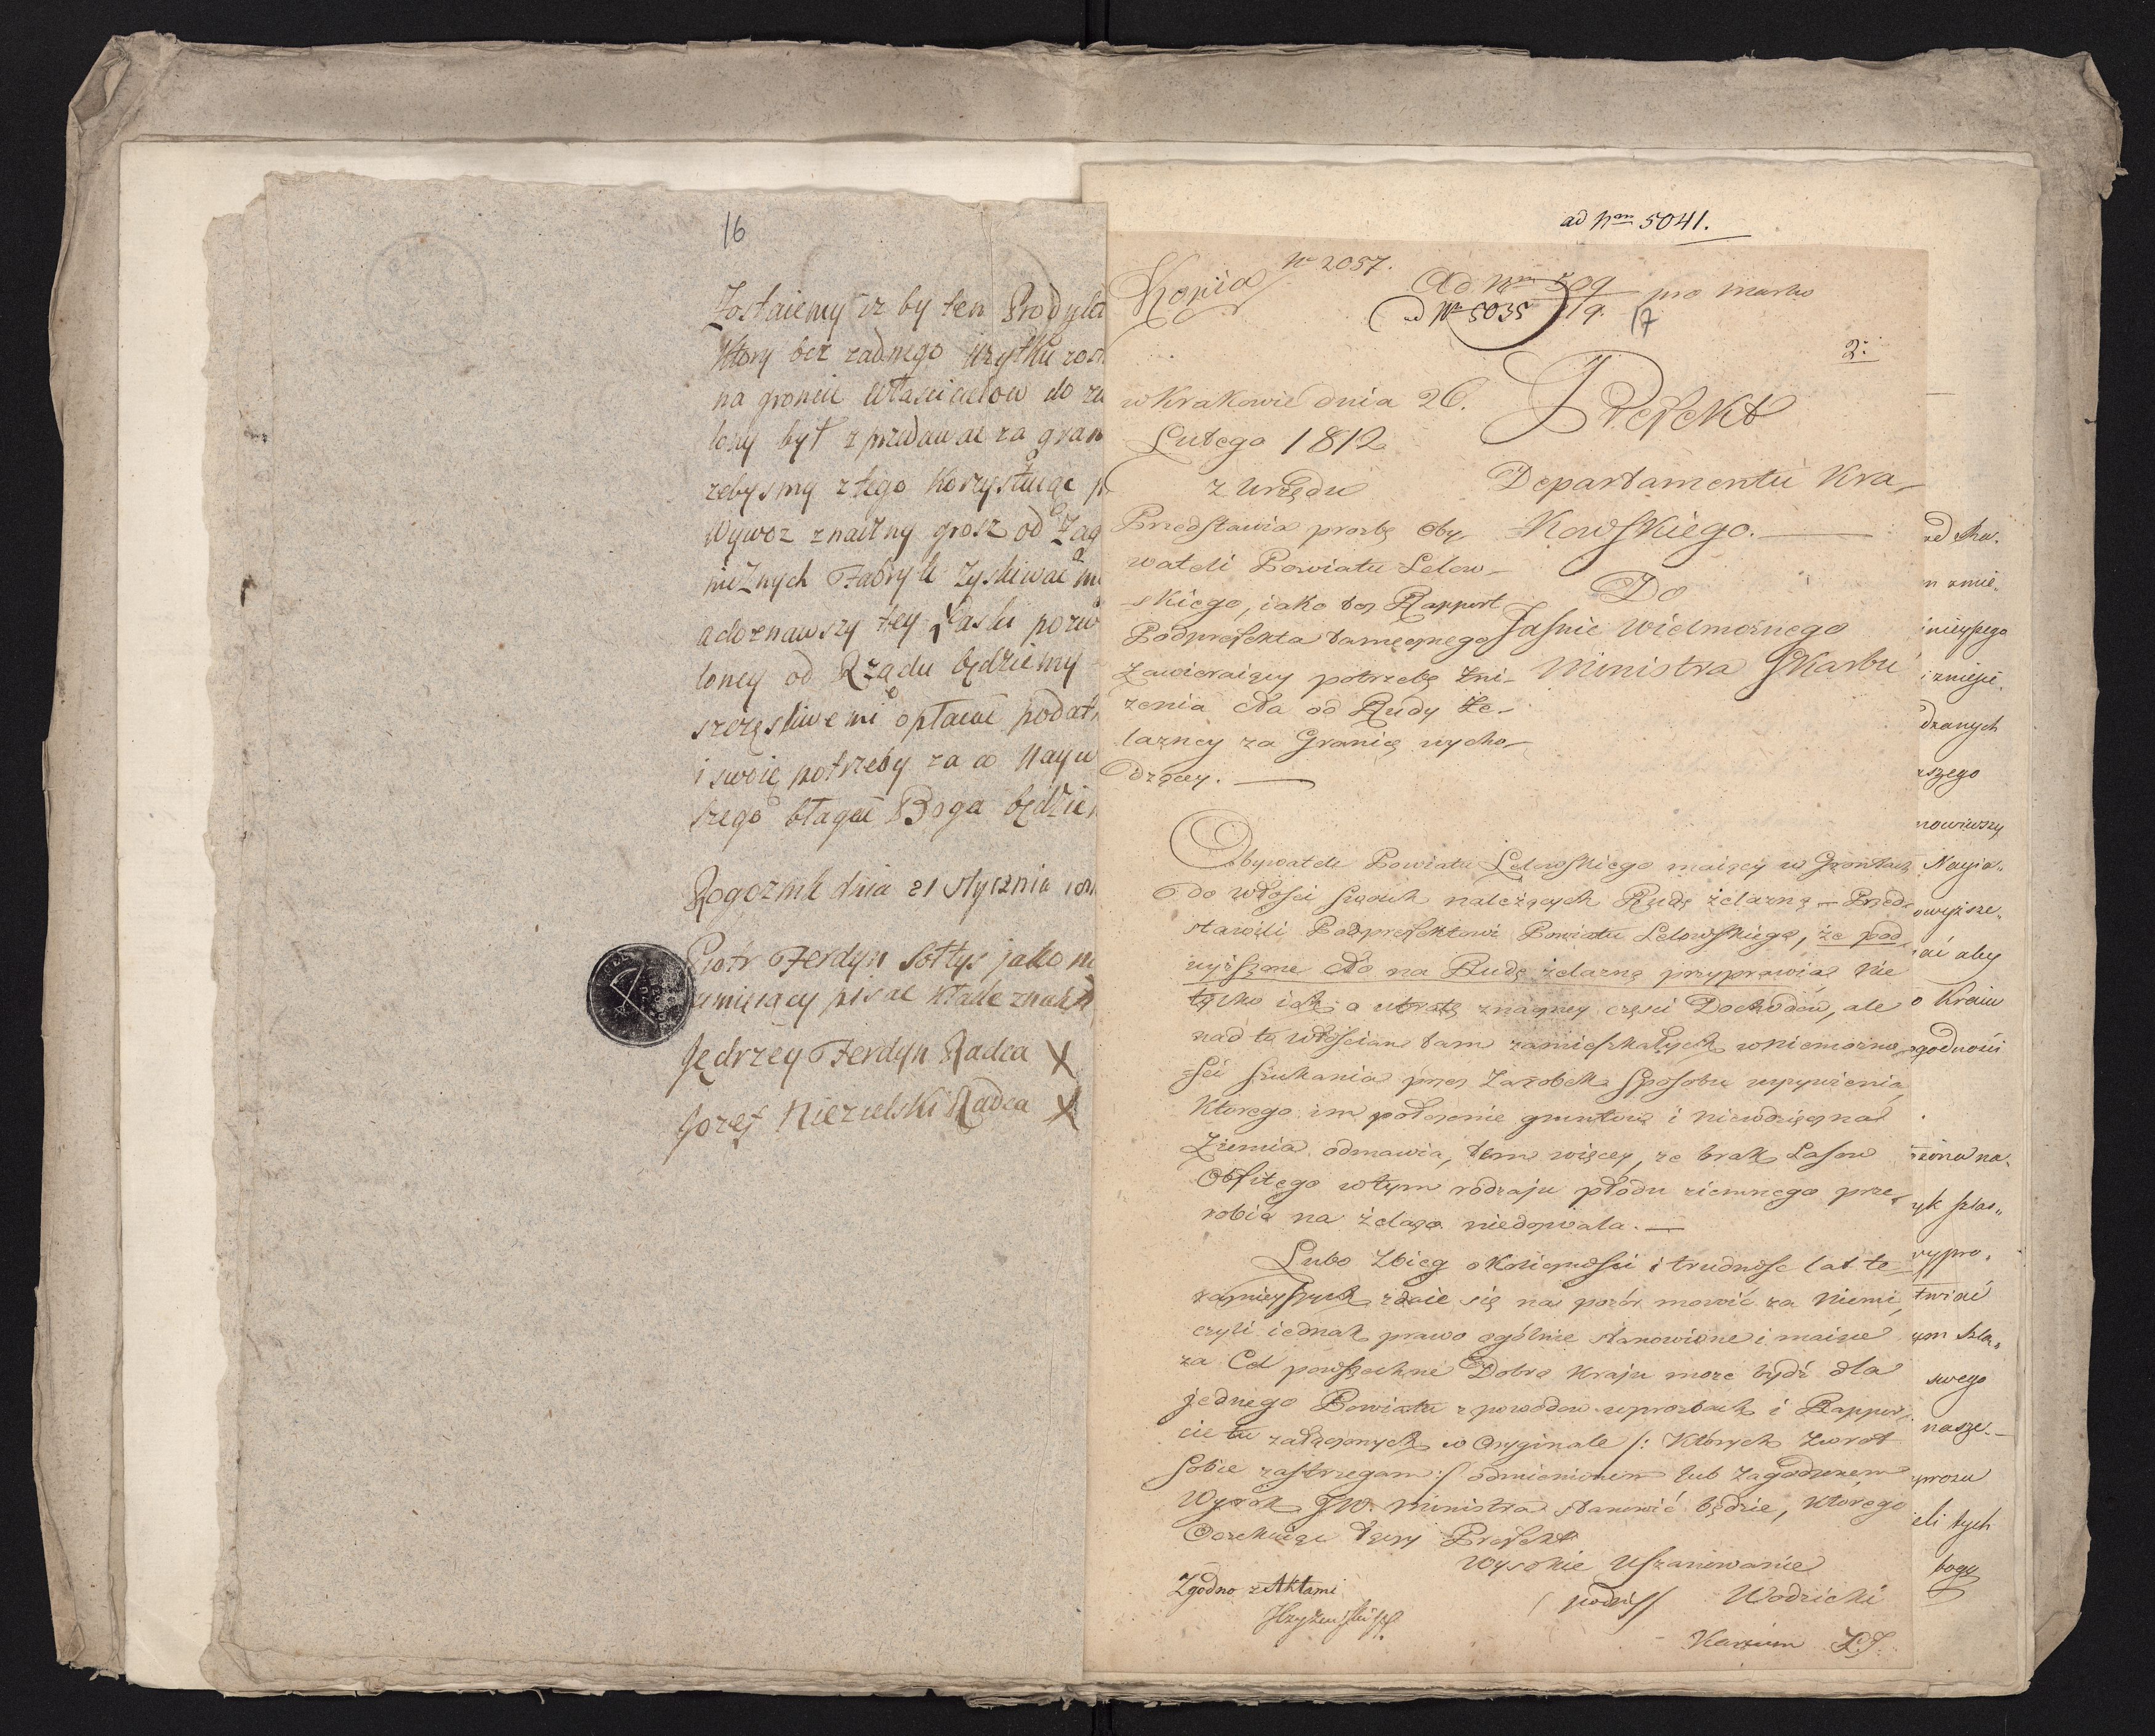 16
Zostaiemy iz by ten Prodykt
Ktory bez zadnego Uzytku
na groncie Własciciełow do
lony był zprzedawac za gran
zebysmy z tego Korzystuiąc
Wywoz znaczny grosz od Zag
nicznych Fabryk Zyskiwac
a doznawszy tey Łaski pozwo
loney od Rządu będziemy
szczęsliwemi opłacac podat
i swoię potrzeby za co Nayw
szego błagac Boga będzie
Rogoznik dnia 21 Stycznia
Piotr Ferdyn Sołtys jako
umięiący pisac kłade znak
Jędrzey Ferdyn Radca X
Jozef Niezielski Radca X
ad Nm 5041.
Kopia Nr 2057.
Ad Nm 509 pro Martio
ad Nr 5035 19. 17
2:
w Krakowie dnia 26.
Lutego 1812
z Urzędu
Przedstawia prozbę Oby
wateli Powiatu Lelow
skiego, iako tez Rapport
Podprefekta tamecznego
Zawieraiący potrzebę Zni-
zenia Cła od Rudy Że-
lazney za Granicę wycho-
dzącey.
Prefekt
Departamentu Kra-
Kowskiego.
Do
Jasnie Wielmoznego
Ministra Skarbu
Obywatele Powiatu Lelowskiego maiący w Gruntach
do Włości swoich należących Rudę żelazną — Przed-
stawili Podprefektowi Powiatu Lelowskiego, że pod-
wyższone Cło na Rudę żelazną przyprawia nie
tylko ich o utratę znaczney części Dochodow, ale
nad to włościan tam zamieszkałych w niemozno-
ści szukania przez Zarobek sposobu wyzywienia
Ktorego im połozenie gruntow i niewdzięczna
Ziemia odmawia, tem więcey, ze brak Lasow
Obfitego w tym rodzaju płodu ziemnego prze-
robić na żelazo niedozwala. —
Lubo Zbieg okoliczności i trudność lat te-
raznieyszych zdaie się na pozór mowić za Niemi,
czyli iednak prawo ogólnie stanowione i maiące
za Cel powszechne Dobro Kraju moze bydź dla
jednego Powiatu z powodow w prozbach i Rappor-
cie tu załączonych w Oryginale /: Ktorych Zwrot
Sobie zastrzegam :/ odmienionem lub Zagodzonem
Wyrok JW. Ministra stanowić będzie, Którego
Oczekuiąc łączy Prefekt
Wysokie Uszanowanie
(podpis) Wodzicki
Zgodno z Aktami
ed
nieyszego
dzanych
szego
nowiwszy
Nayia-
wyższe-
ać aby
o Kraiu
godności
yk
wypro-
twiać
ym
swego
nasze-
eli tych
bogy